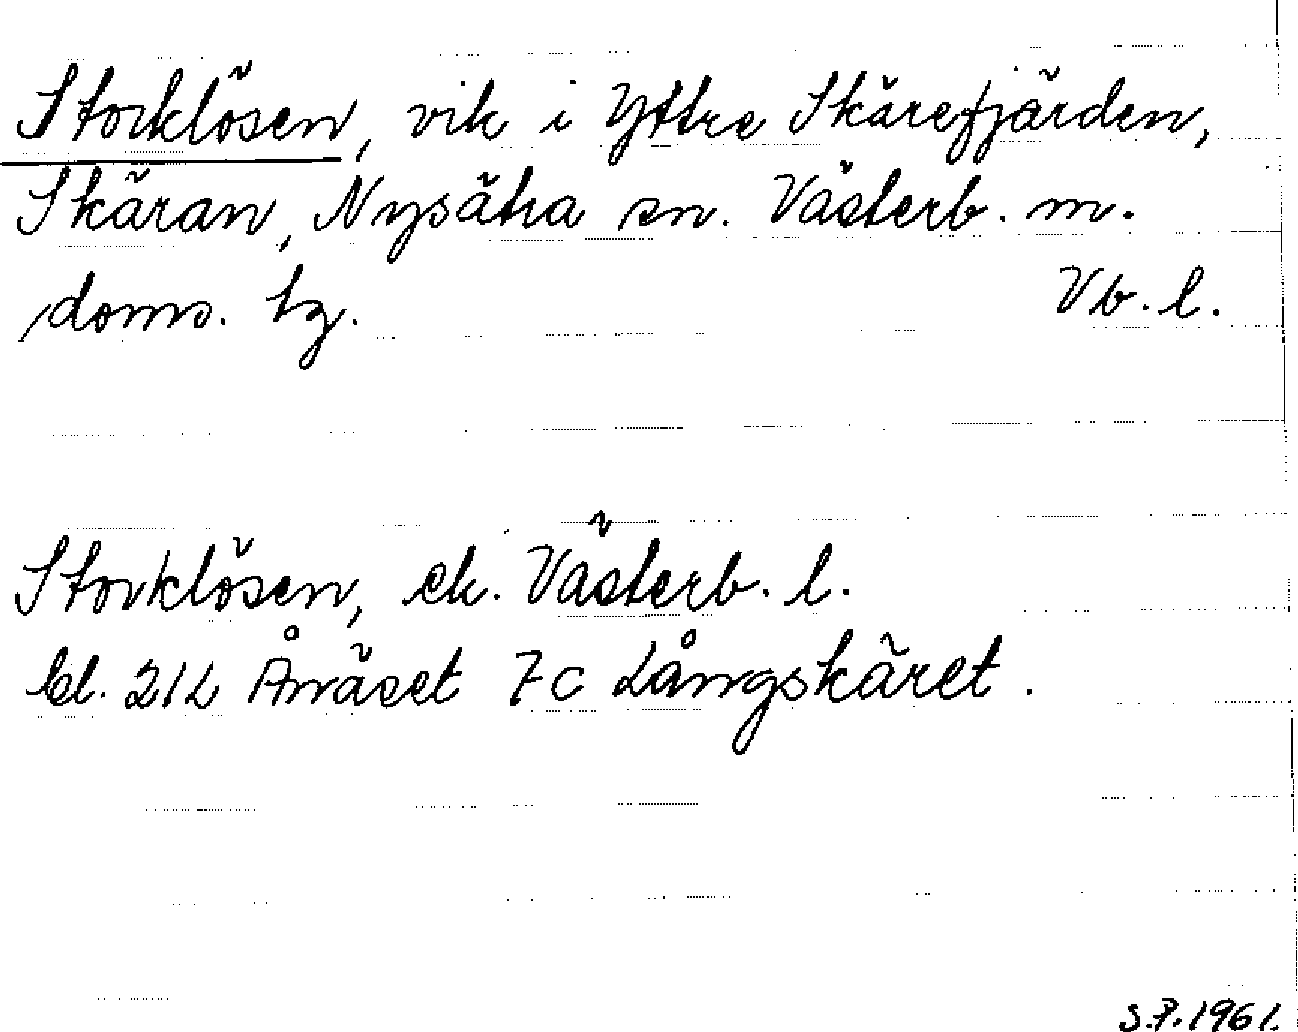 Storklösen, vik i Yttre Skärefjärden,
Skäran, Nysätra sn. Västerb. m.
doms. hg. Vb. l.
Storklösen, ek. Västerb. l.
bl. 21L Ånäset 7c Långskäret.
S.P. 1961.